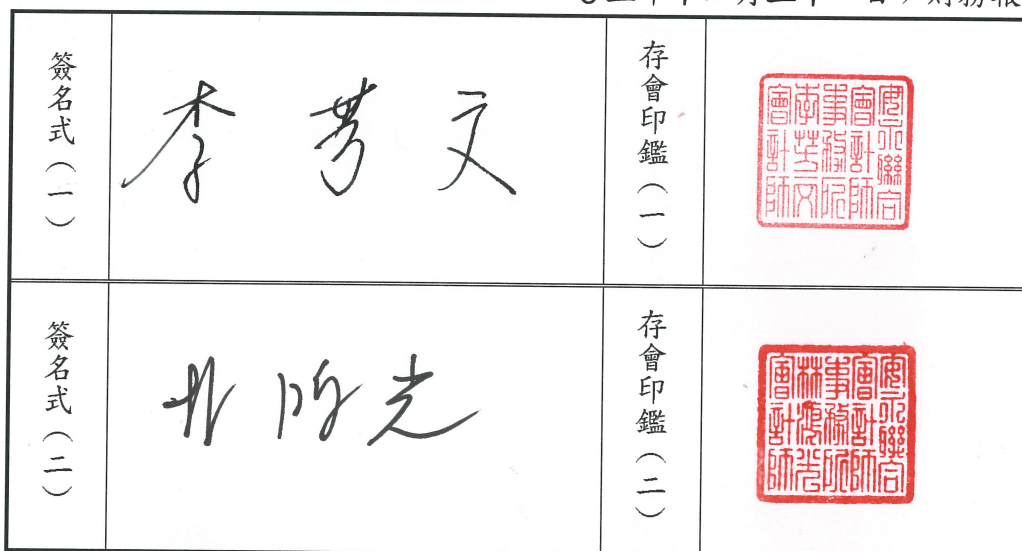 簽名式(一)
李芳文
存會印鑑(一)
安永聯合
會計師
事務所
李芳文
會計師
簽名式(二)
林鴻光
存會印鑑(二)
安永聯合
會計師
事務所
林鴻光
會計師